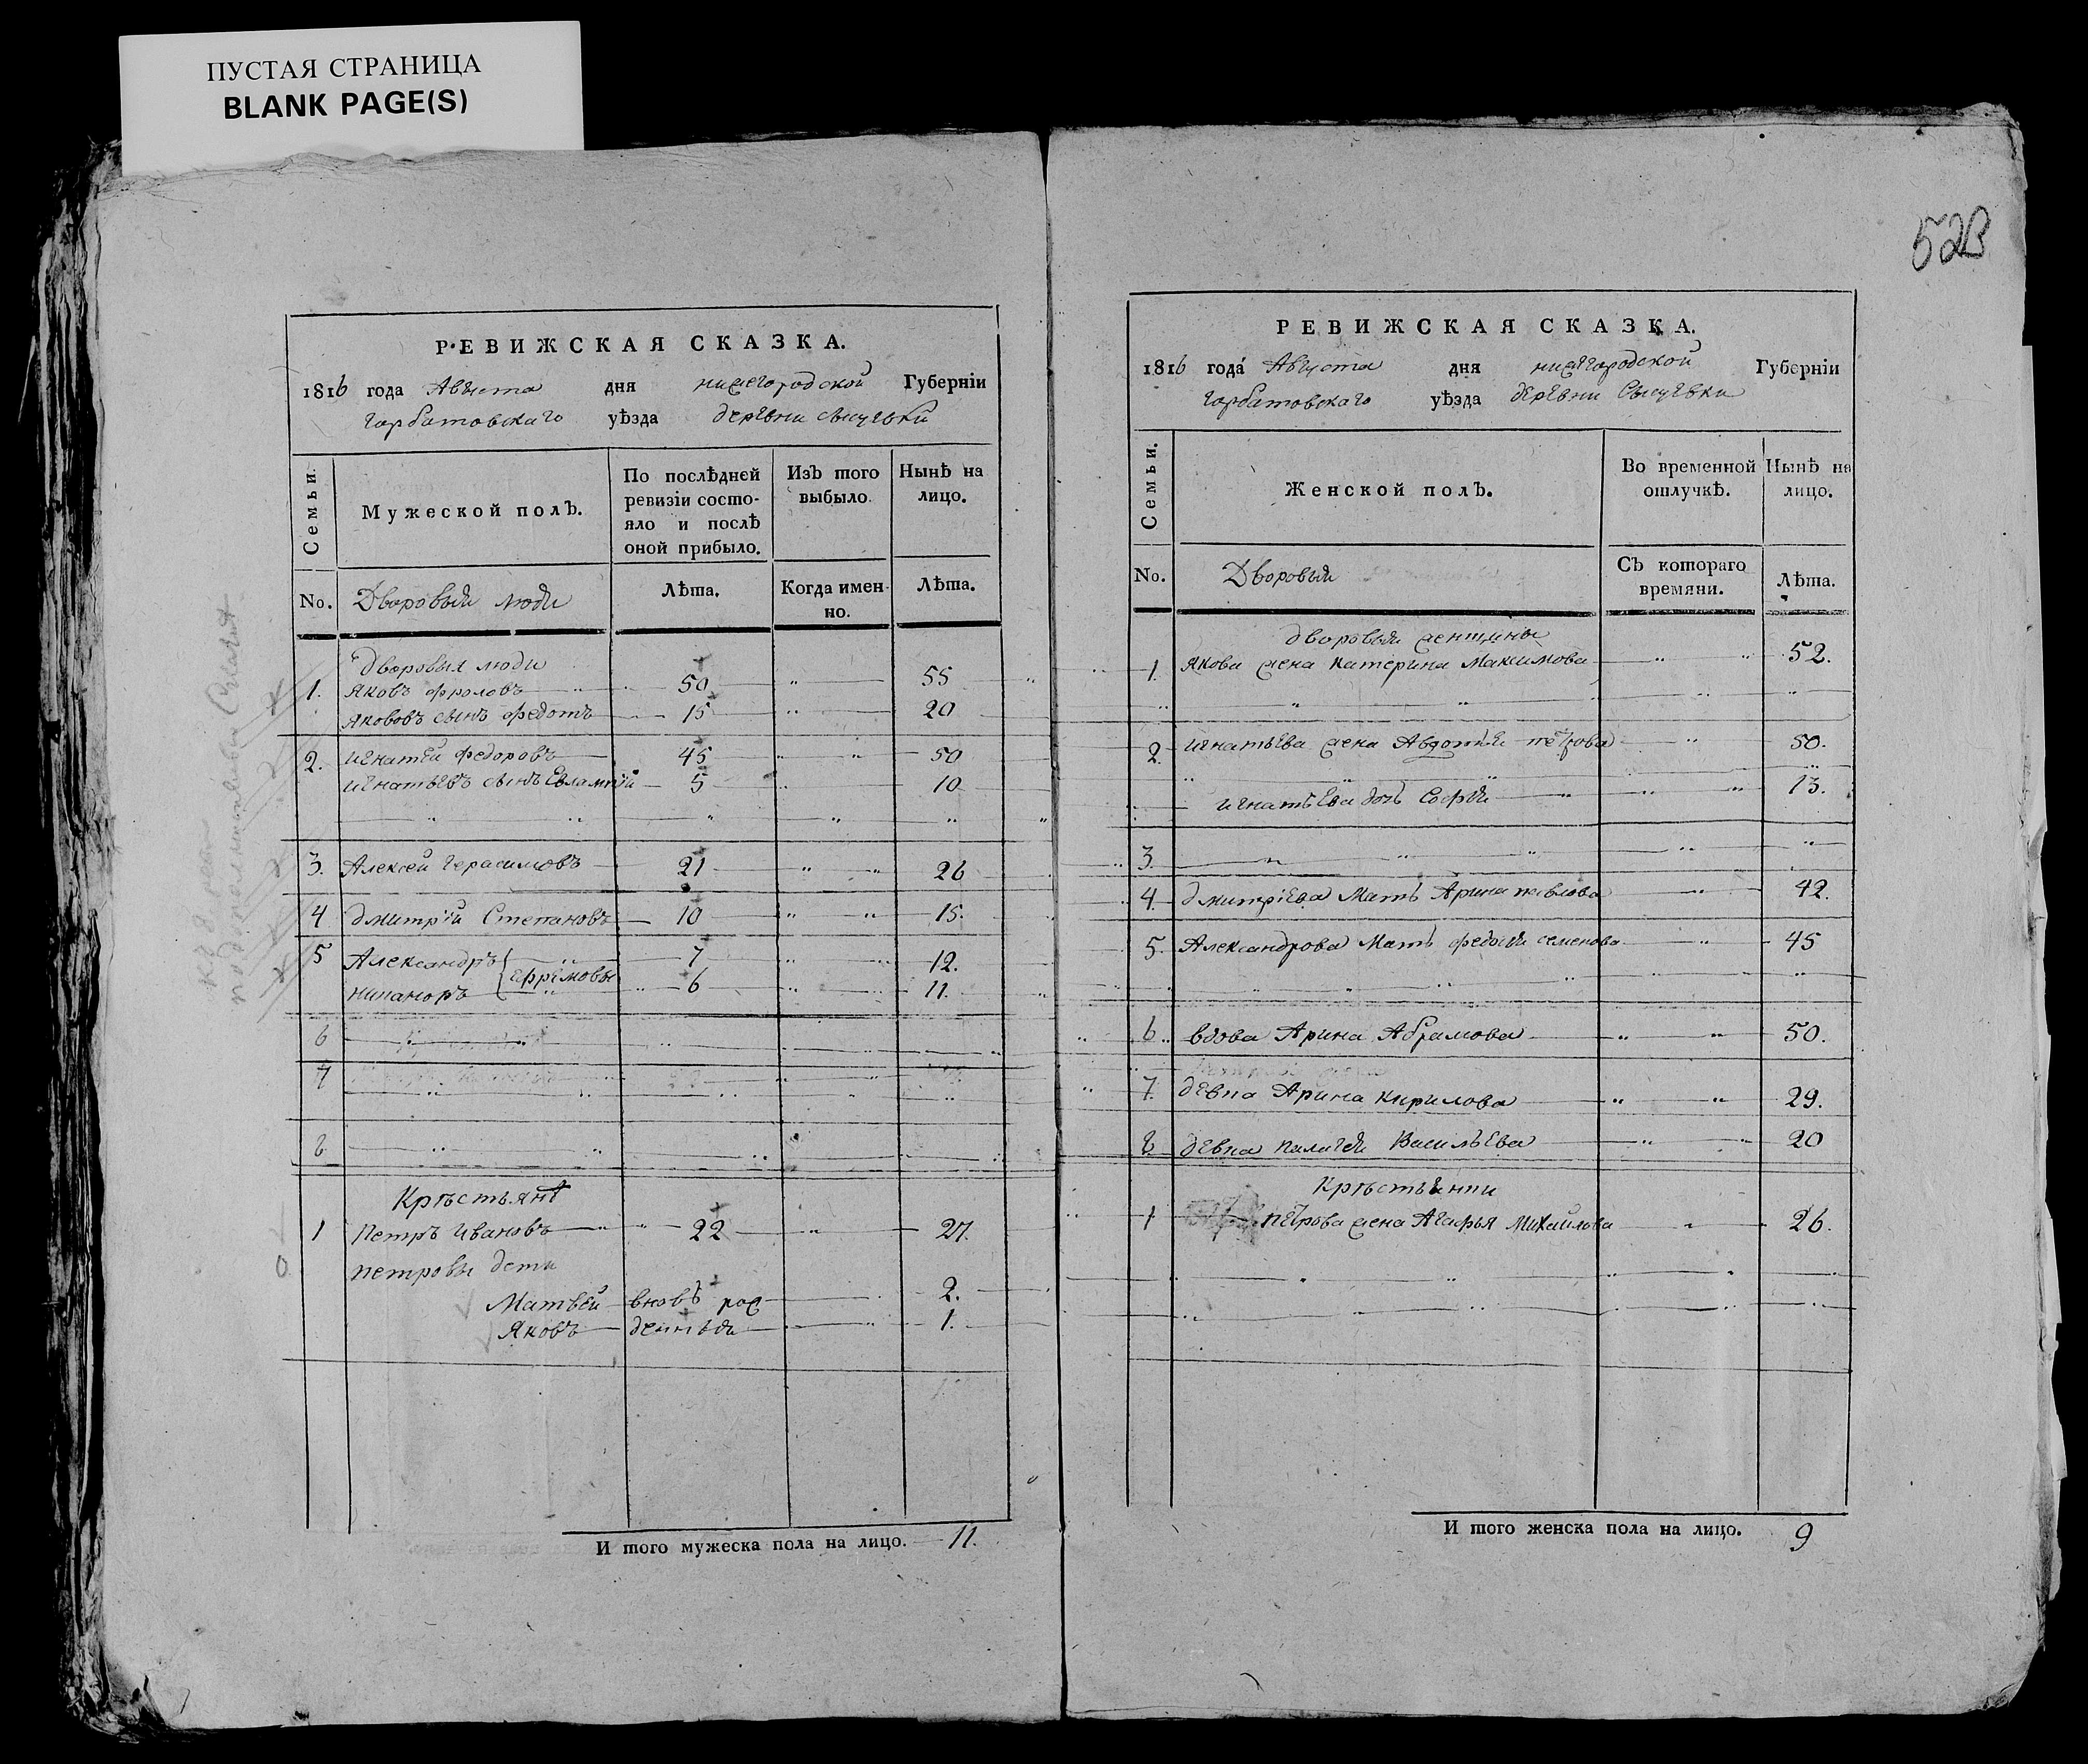 ПУСТАЯ СТРАНИЦА
BLANK PAGE(S)
РЕВИЖСКАЯ СКАЗКА.
1816 года Августа дня нижегородской Губерніи
горбатовскаго уѣзда деревни
Семьи.
Мужеской полъ.
По послѣдней ревизіи состояло и послѣ оной прибыло.
Изъ того выбыло.
Нынѣ на лицо.
No. Дворовыя люди Лѣта. Когда именно. Лѣта.
Дворовыя люди
1. Яковъ Фроловъ 50 55
Яковъ сынъ Федотъ 15 20
2. Игнатей Федоровъ 45 50
Игнатьевъ сынъ Евлампий 5 10
3. Алексей Герасимовъ 21 26
4 Дмитрий Степановъ 10 15.
5 Александръ Ефремовы 7 12.
Никаноръ 6 11.
6
7
8
Крестьянѣ
1 Петръ Ивановъ 22 27.
петровы дети
Матвей вновь рож 2.
Яковъ денныя 1.
И того мужеска пола на лицо. 11.
РЕВИЖСКАЯ СКАЗКА.
1816 года Августа дня нижегородской Губерніи
горбатовскаго уѣзда деревни
Семьи.
Женской полъ.
Во временной отлучкѣ.
Нынѣ на лицо.
No. Дворовыя Съ котораго времяни. Лѣта.
дворовыя женщины
1. Якова жена Катерина Максимова 52.
2. Игнатьева жена Авдотья петрова 50.
игнатьева дочь Софья 13.
3.
4. Дмитриева Мать Арина павлова 42.
5. Александрова Мать Федосья семенова 45
6. вдова Арина Абрамова 50.
7. девка Арина Кирилова 29.
8 девка палагея Васильева 20
Крестьянки
1 петрова жена Агафья Михайлова 26.
И того женска пола на лицо. 9